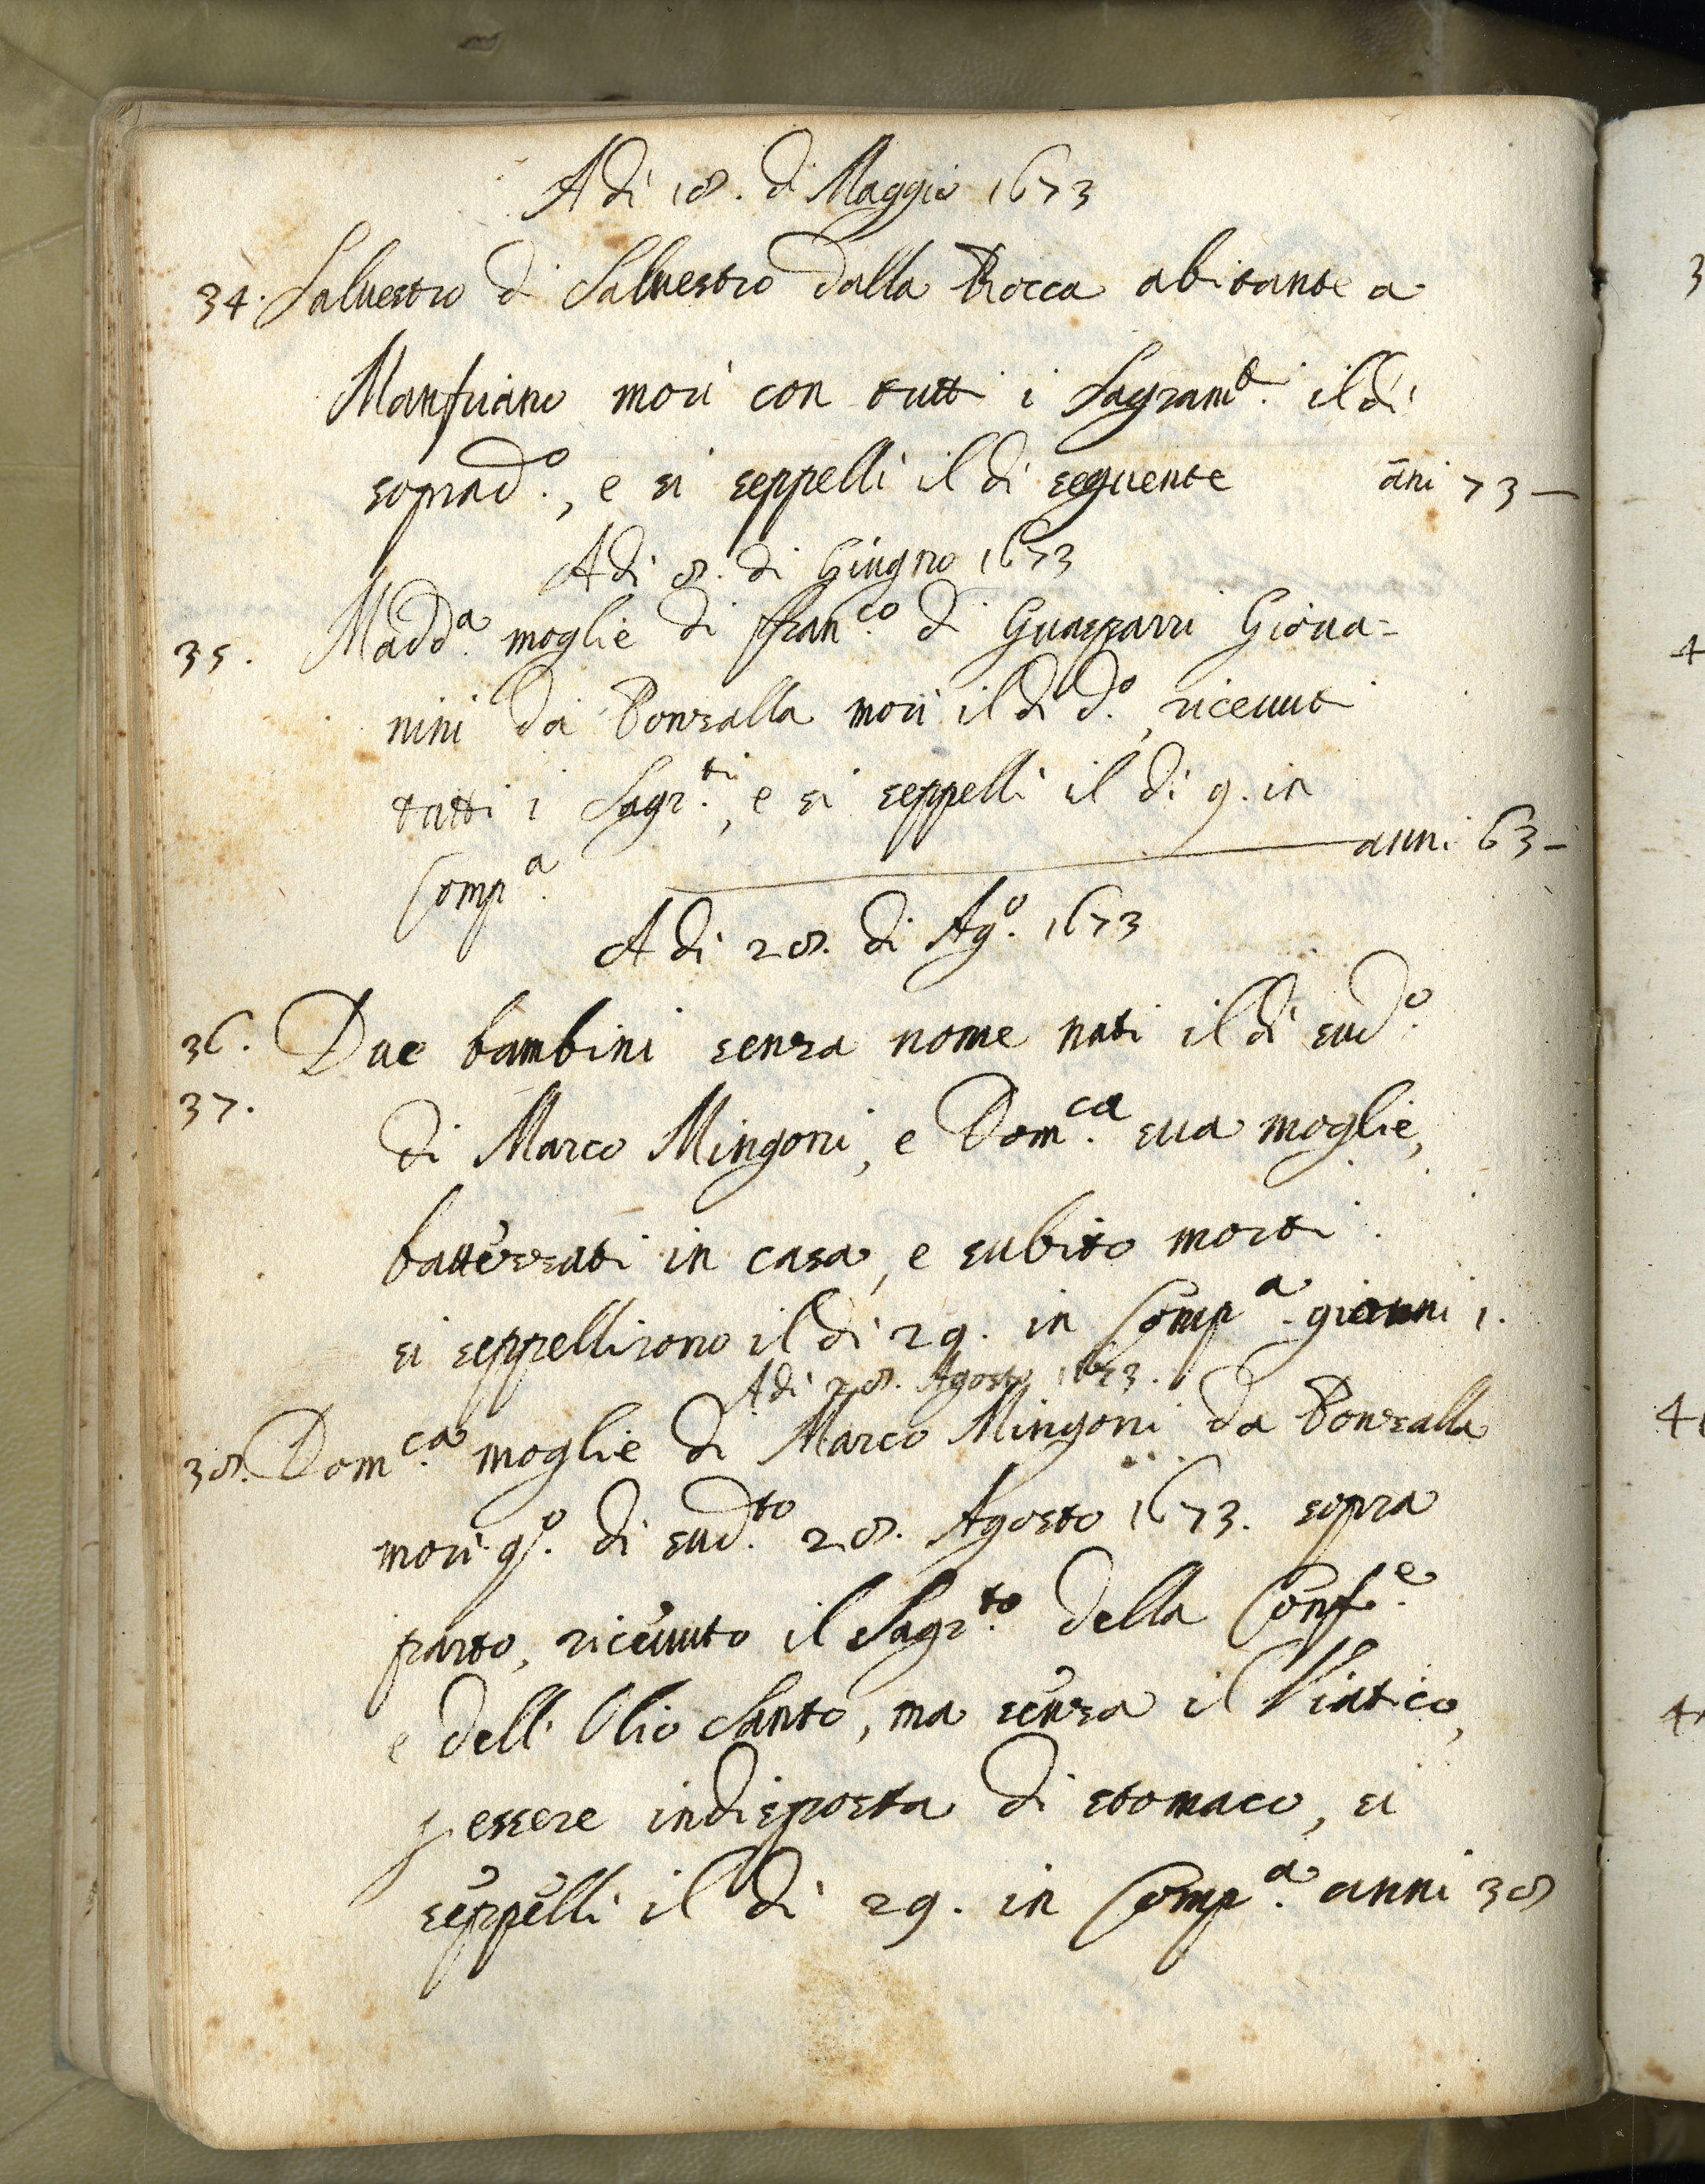 A di 18. di Maggio 1673
34. Salvestro di Salvestro dalla Rocca abitante a
Manfriano morì con tutti i Sagram.ti il di
soprad.o, e si seppellì il di seguente āni 73 —
A di 8. di Giugno 1673
35. Madd.a moglie di Fran.co di Guasparri Giova=
nini da Ponzalla morì il di d.o, ricevuti
tutti i Sagr.ti, e si seppellì il di 9. in
Comp.a — anni 63 —
A di 28. di Ag.o 1673
36. Due bambini senza nome nati il di sud.o
37. di Marco Mingoni, e Dom.ca sua moglie,
battezzati in casa, e subito morti
si seppellirono il di 29. in Comp.a giorni 1.
A di 28. Agosto 1673.
38. Dom.ca moglie di Marco Mingoni da Ponzalla
morì q.o di sud.to 28. Agosto 1673. sopra
parto, ricevuto il Sagr.to della Conf.e
e dell' Olio Santo, ma senza il Viatico,
p essere indisposta di stomaco, si
seppellì il di 29. in Comp.a anni 38